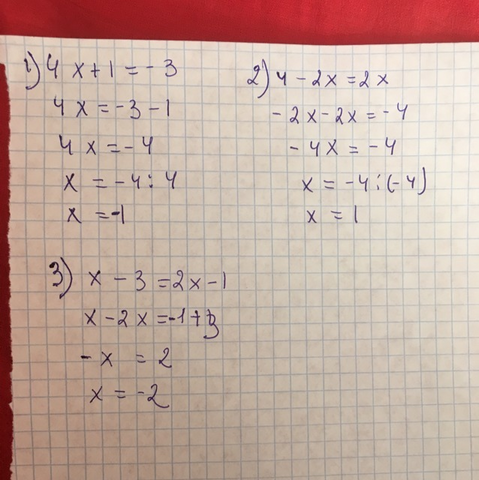 1) 4x+1=-3
4x=-3-1
4x=-4
x=-4:4
x=-1
2) 4-2x=2x
-2x-2x=-4
-4x=-4
x=-4:(-4)
x=1
3) x-3=2x-1
x-2x=-1+3
-x=2
x=-2